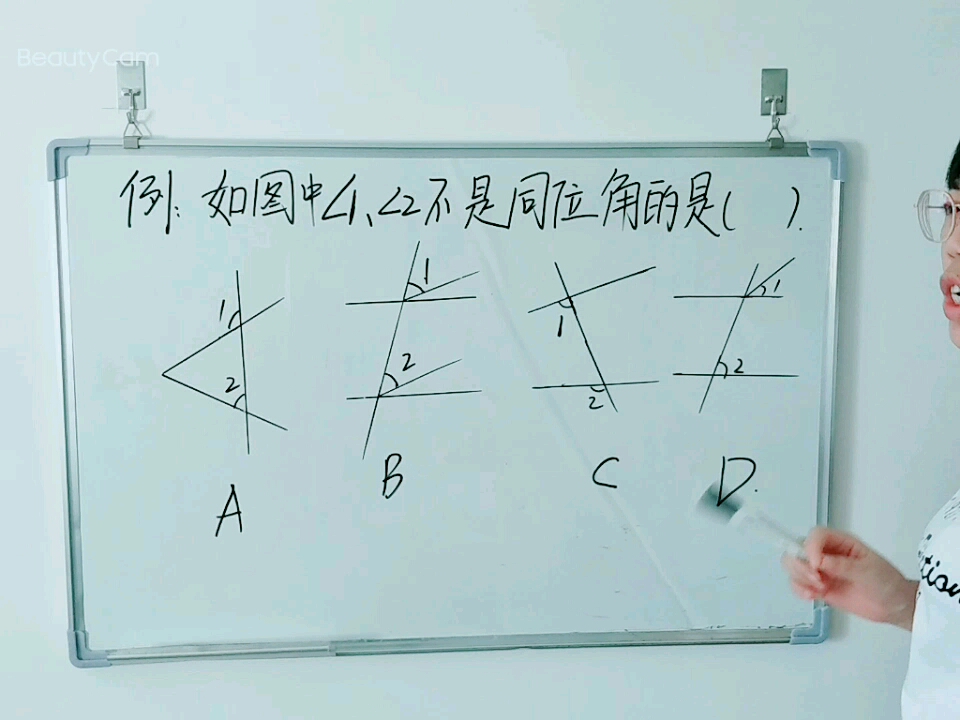 BeautyCam
例:如图中∠1、∠2不是同位角的是( ).
1
2
A
1
2
B
1
2
C
1
2
D.